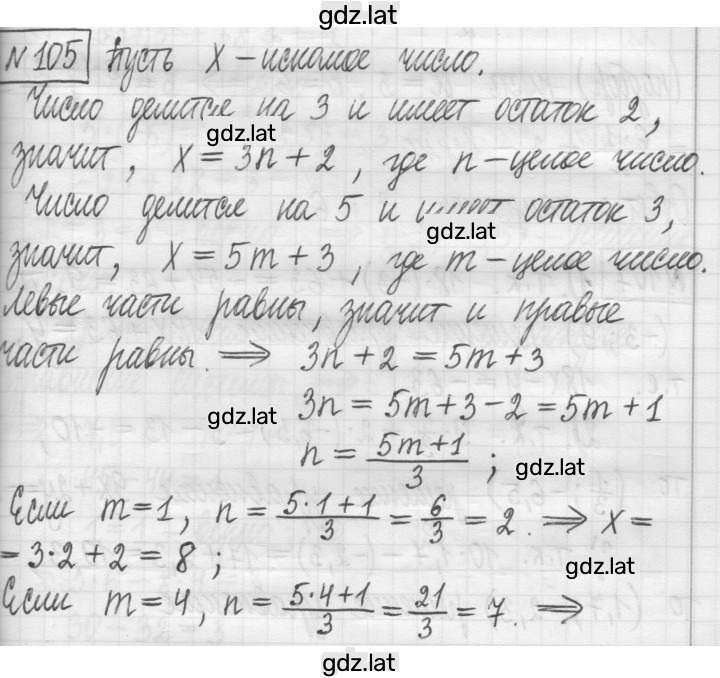 gdz.lat
№105 Пусть x – искомое число.
Число делится на 3 и имеет остаток 2,
gdz.lat
значит, x = 3n + 2, где n – целое число.
Число делится на 5 и имеет остаток 3,
gdz.lat
значит, x = 5m + 3, где m – целое число.
Левые части равны, значит и правые
части равны. ⟹ 3n + 2 = 5m + 3
gdz.lat
3n = 5m + 3 – 2 = 5m + 1
n = (5m + 1)/3 ;
gdz.lat
Если m = 1, n = (5·1 + 1)/3 = 6/3 = 2. ⟹ x =
= 3·2 + 2 = 8 ;
gdz.lat
Если m = 4, n = (5·4 + 1)/3 = 21/3 = 7. ⟹
gdz.lat